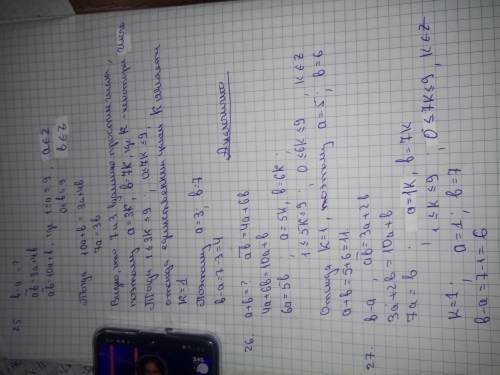 25 b-a=?
ab=3a+4b
ab=10a+b, где 1≤a≤9, a∈Z
0≤b≤9 b∈Z
Тогда 10a+b=3a+4b
7a=3b
Видно, что 7 и 3 взаимно простые числа,
поэтому a=3k, b=7k, где k - некоторое число
Тогда 1≤3k≤9, 0≤7k≤9
отсюда единственным k является
k=1
Поэтому a=3, b=7
b-a=7-3=4
Аналогично
26. a+b=? ab=4a+6b
4a+6b=10a+b
6a=5b, a=5k, b=6k
1≤5k≤9; 0≤6k≤9, k∈Z
Отсюда k=1, поэтому a=5, b=6
a+b=5+6=11
27. b-a, ab=3a+2b
3a+2b=10a+b
7a=b. a=1k, b=7k
1≤k≤9, 0≤7k≤9, k∈Z
k=1. a=1; b=7
b-a=7-1=6